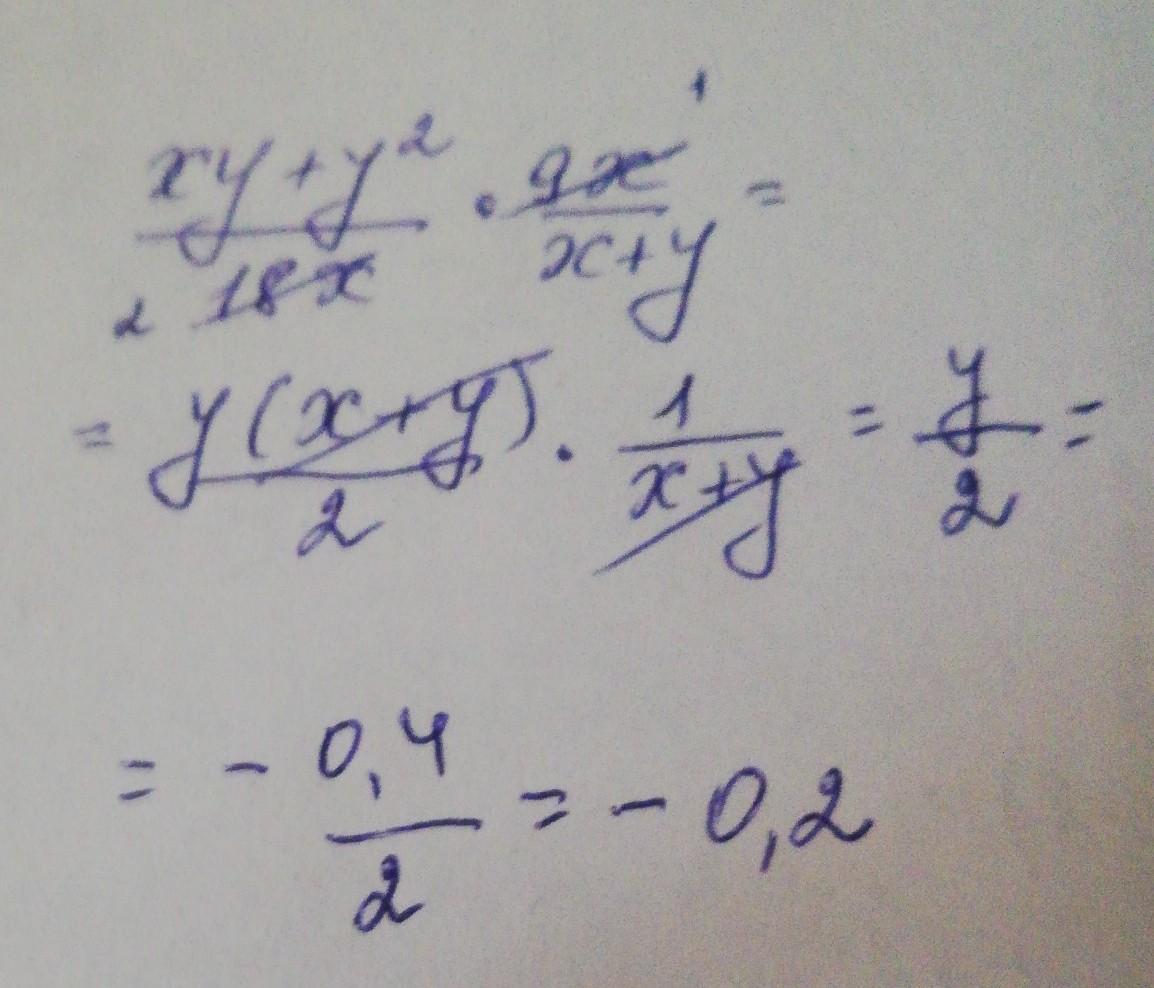 (xy+y²)/(18x) · (9x)/(x+y) =
2 1
= y(x+y)/2 · 1/(x+y) = y/2 =
= - 0,4/2 = - 0,2